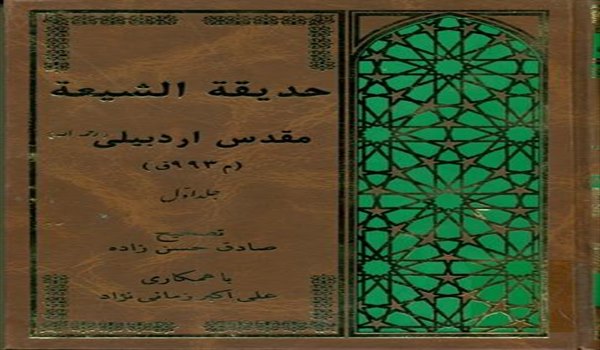 حديقة الشيعة
مقدس اردبیلی
(م ۹۹۳ق)
جلد اوّل
تصحیح
صادق حسن زاده
با همکاری
علی اکبر زمانی نژاد